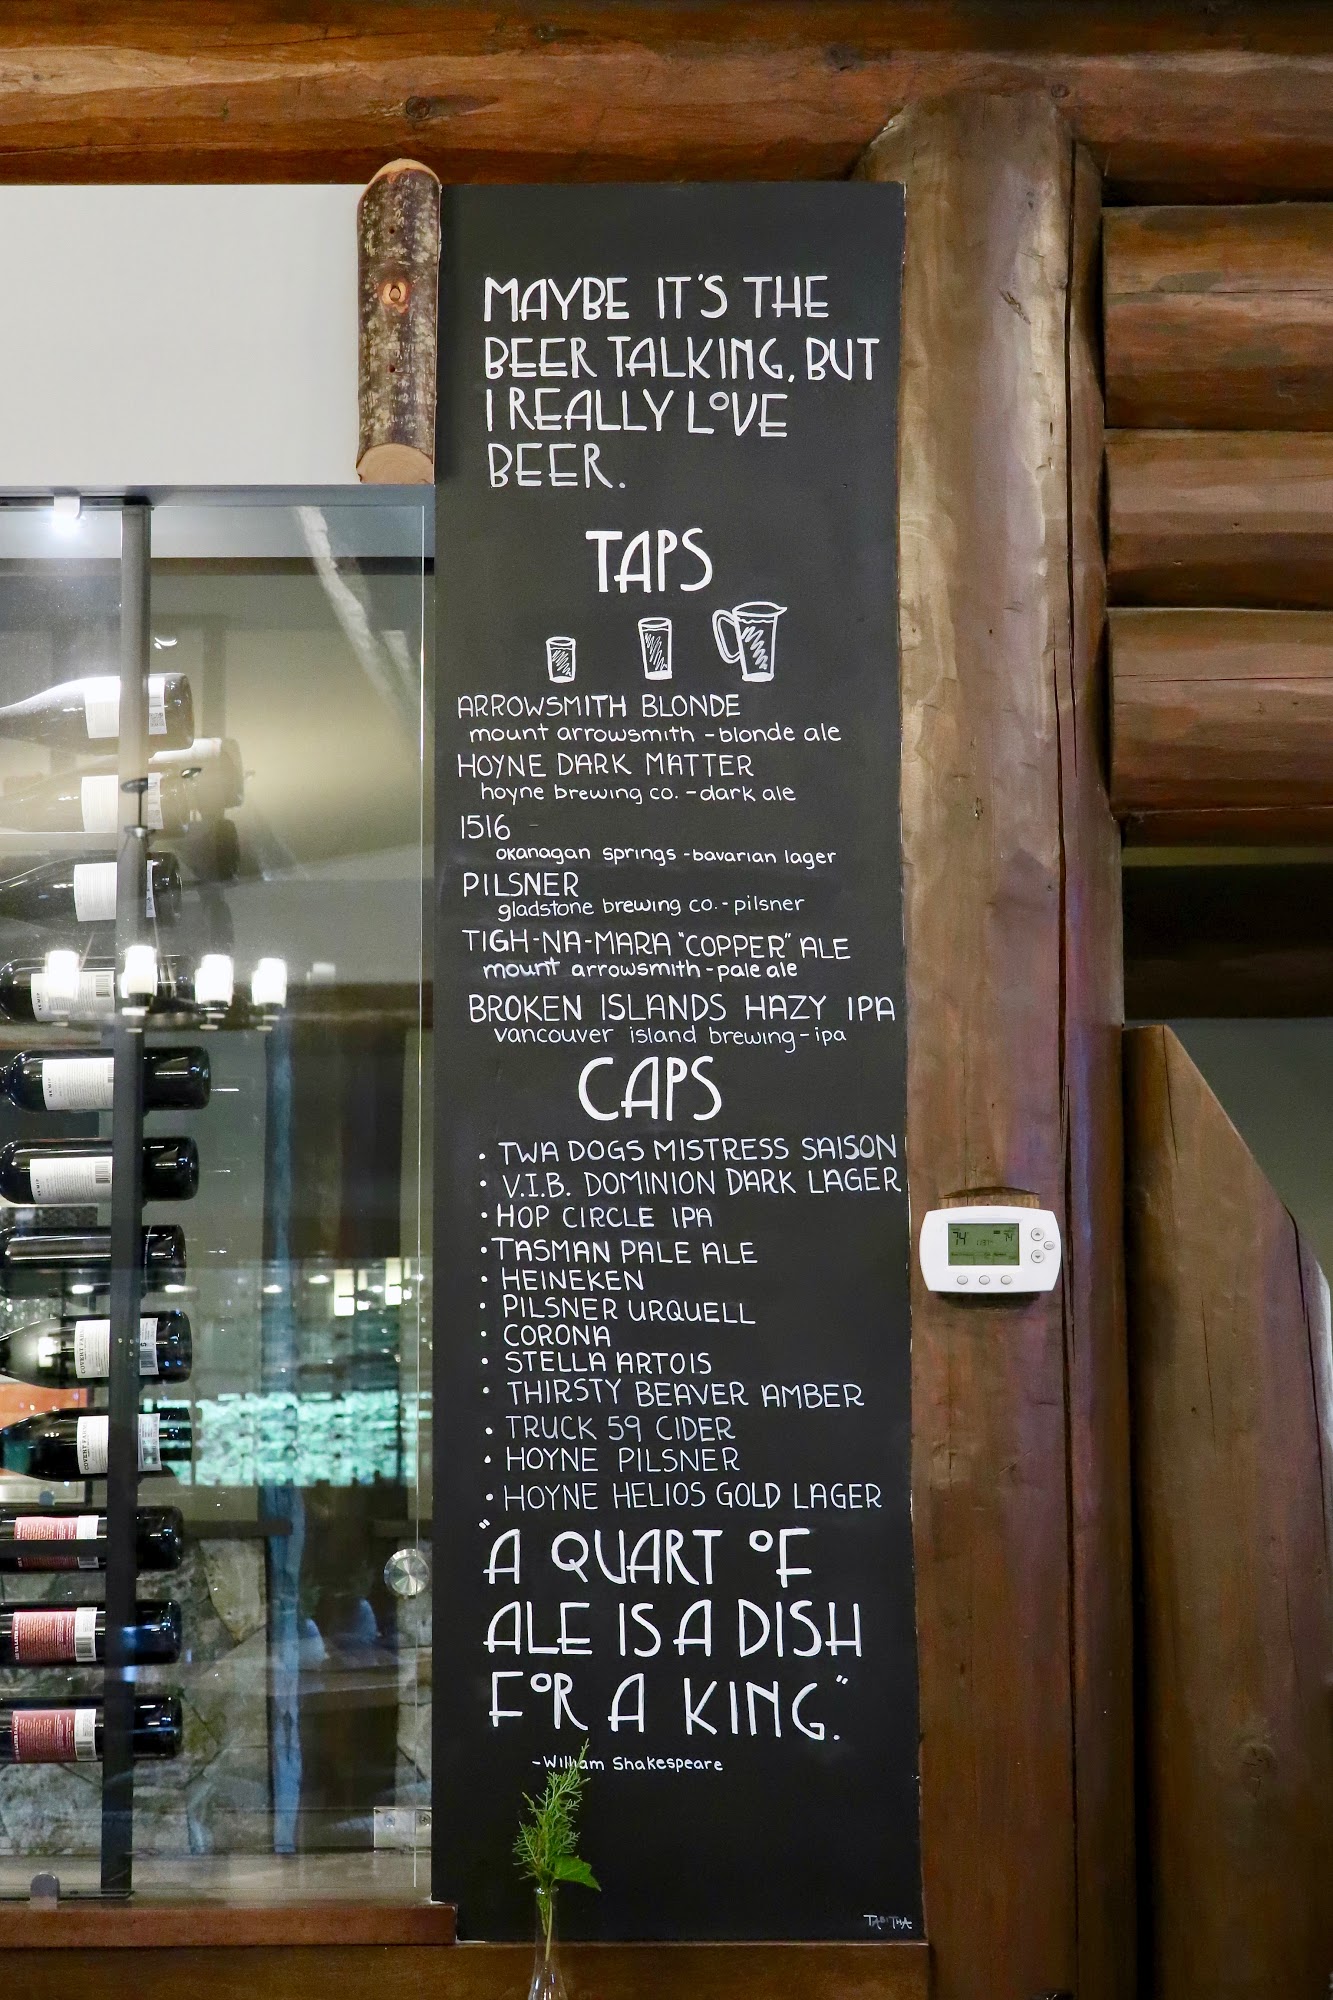 MAYBE IT'S THE
BEER TALKING, BUT
I REALLY LOVE
BEER.
TAPS
ARROWSMITH BLONDE
mount arrowsmith - blonde ale
HOYNE DARK MATTER
hoyne brewing co. - dark ale
1516
okanagan springs - bavarian lager
PILSNER
gladstone brewing co. - pilsner
TIGH-NA-MARA "COPPER" ALE
mount arrowsmith - pale ale
BROKEN ISLANDS HAZY IPA
vancouver island brewing - ipa
CAPS
• TWA DOGS MISTRESS SAISON
• V.I.B. DOMINION DARK LAGER
• HOP CIRCLE IPA
• TASMAN PALE ALE
• HEINEKEN
• PILSNER URQUELL
• CORONA
• STELLA ARTOIS
• THIRSTY BEAVER AMBER
• TRUCK 59 CIDER
• HOYNE PILSNER
• HOYNE HELIOS GOLD LAGER
"A QUART OF
ALE IS A DISH
FOR A KING."
-William Shakespeare
TABITHA
74
74